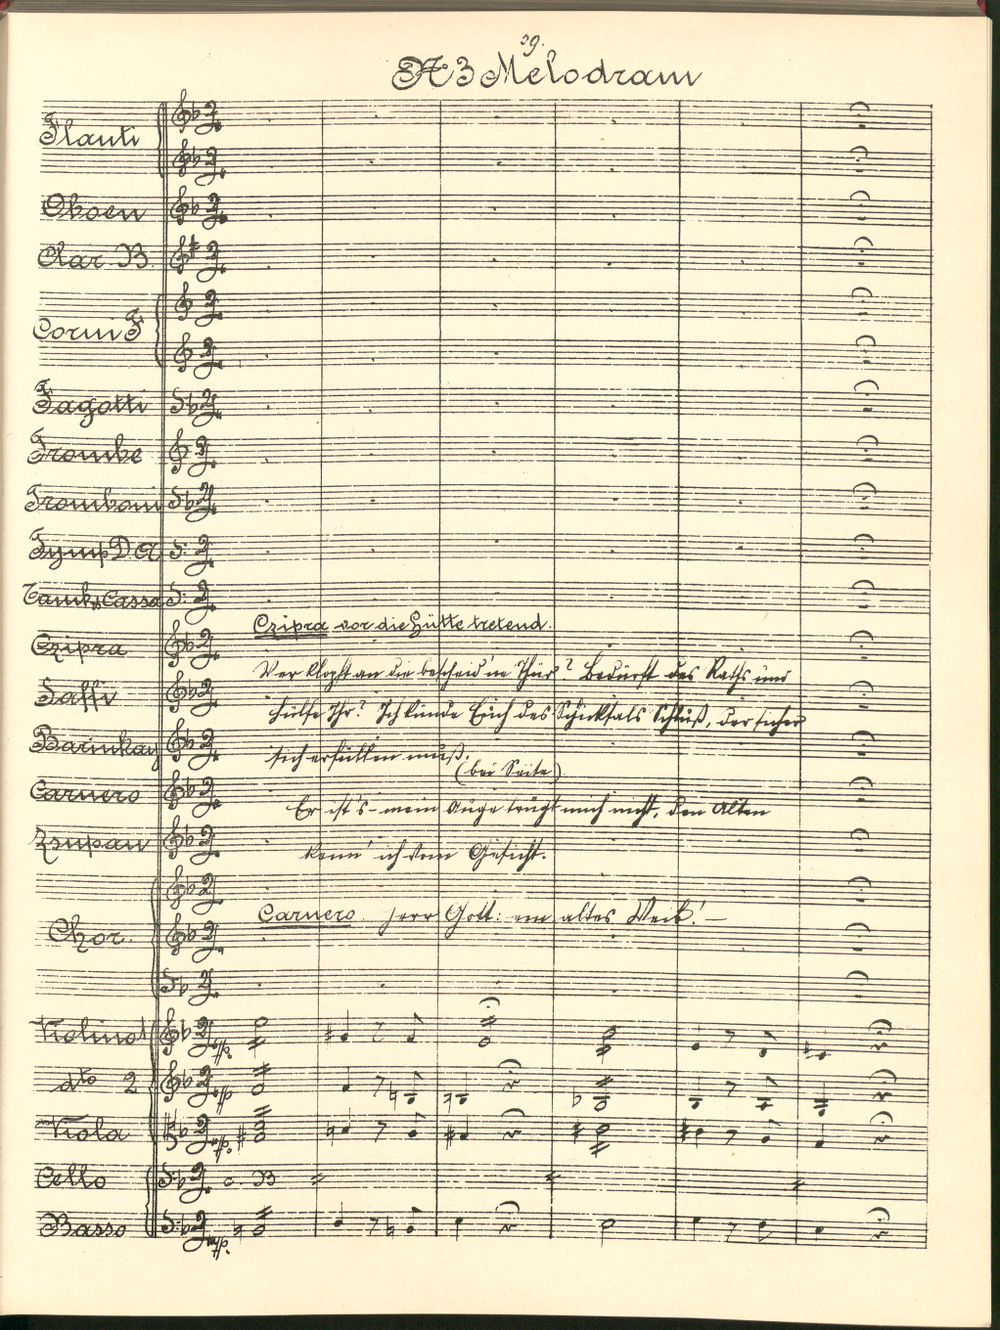 39.
No 3 Melodram
Flauti
Oboen
Clar. B.
Corni F
Fagotti
Trombe
Tromboni
Tymp D. A
Tamb. Cassa
Czipra vor die Hütte tretend.
Czipra
Wer klopft an die bescheid'ne Thür? Bedürft des Raths und
Saffi
Hülfe Ihr? Ich künde Euch des Schicksals Schluß, der sicher
Barinkay
sich erfüllen muß.
(bei Seite)
Carnero
Er ist's - mein Auge trügt mich nicht, den Alten
Zsupan
kenn' ich vom Gesicht.
Carnero. Herr Gott: ein altes Weib! —
Chor.
Violino 1
mfp.
dto 2
mfp
Viola
mfp.
Cello
c. B
Basso
mfp.